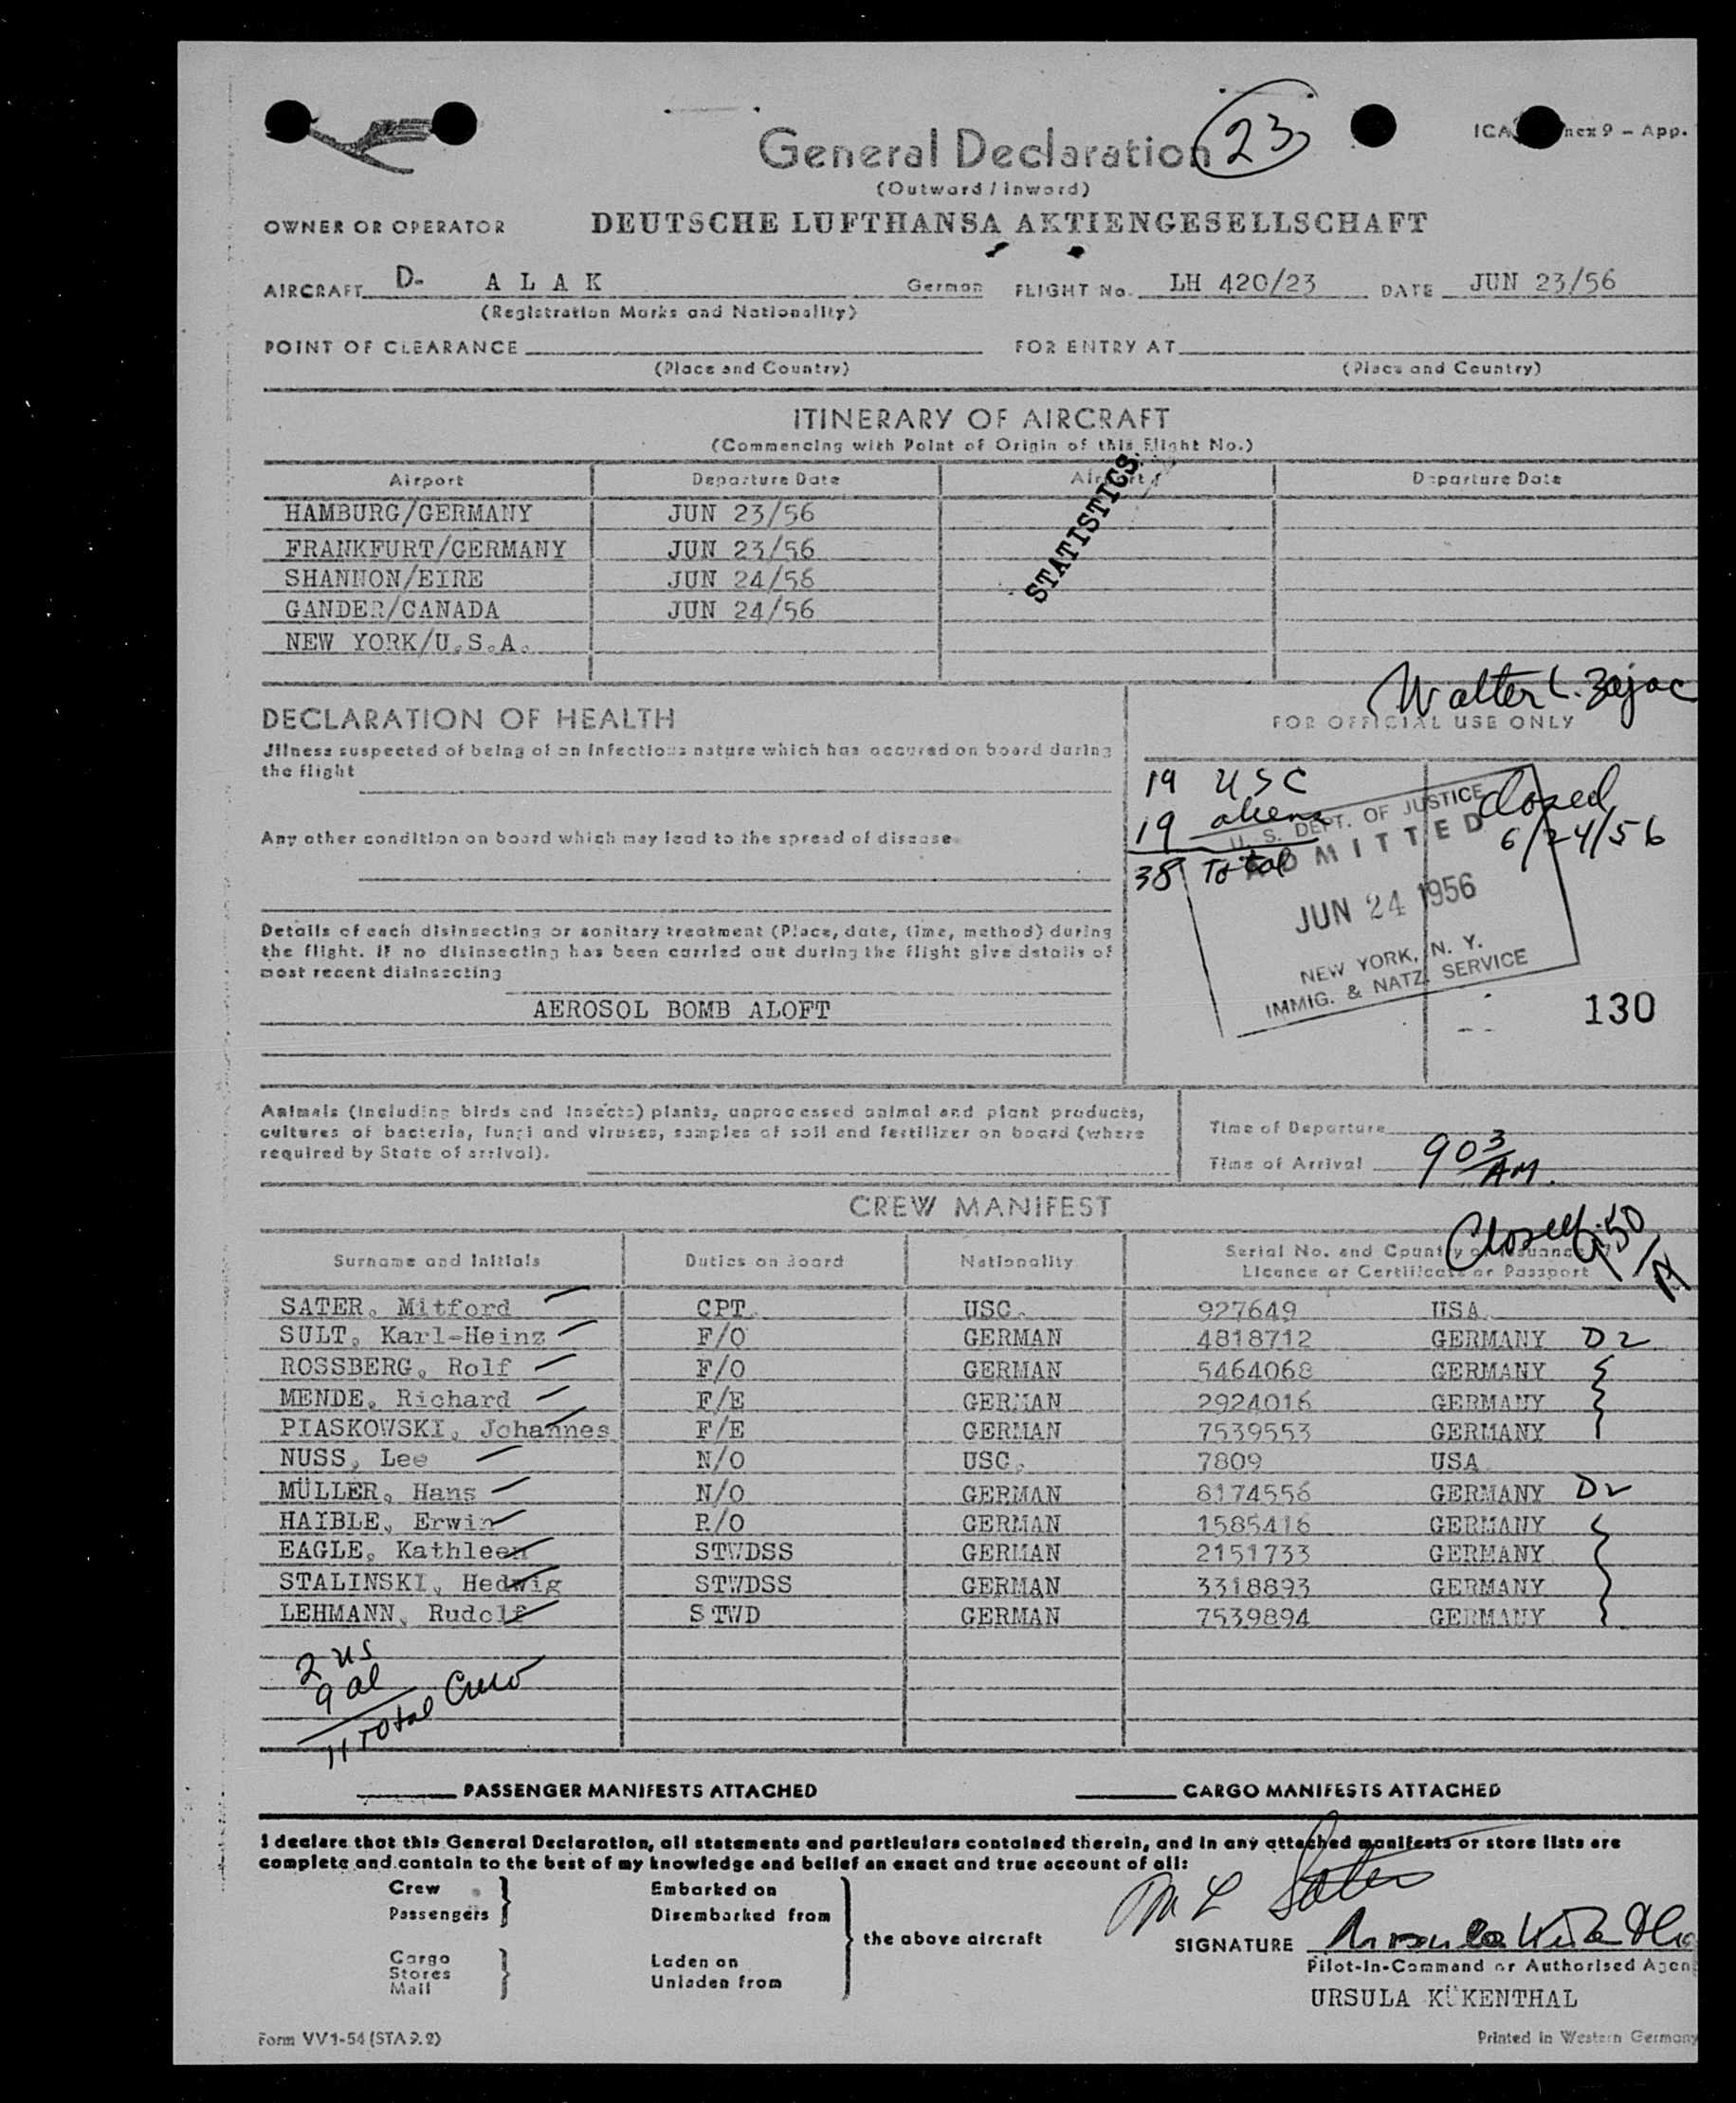 General Declaration
23
ICA nex 9 – App.
(Outward / inward)
OWNER OR OPERATOR DEUTSCHE LUFTHANSA AKTIENGESELLSCHAFT
AIRCRAFT D- A L A K German FLIGHT No. LH 420/23 DATE JUN 23/56
(Registration Marks and Nationality)
POINT OF CLEARANCE FOR ENTRY AT
(Place and Country) (Place and Country)
ITINERARY OF AIRCRAFT
(Commencing with Point of Origin of this Flight No.)
Airport Departure Date Airport Departure Date
STATISTICS
HAMBURG/GERMANY JUN 23/56
FRANKFURT/GERMANY JUN 23/56
SHANNON/EIRE JUN 24/56
GANDER/CANADA JUN 24/56
NEW YORK/U.S.A.
Walter L. Zajac
DECLARATION OF HEALTH
FOR OFFICIAL USE ONLY
Jllness suspected of being of an infectious nature which has occured on board during
the flight
19 USC
19 aliens
38 Total
Closed
6/24/56
U. S. DEPT. OF JUSTICE
ADMITTED
JUN 24 1956
NEW YORK, N. Y.
IMMIG. & NATZ. SERVICE
130
Any other condition on board which may lead to the spread of disease
Details of each disinsecting or sanitary treatment (Place, date, time, method) during
the flight. If no disinsecting has been carried out during the flight give details of
most recent disinsecting
AEROSOL BOMB ALOFT
Animals (including birds and insects) plants, unprocessed animal and plant products,
cultures of bacteria, fungi and viruses, samples of soil and fertilizer on board (where
required by State of arrival).
Time of Departure
Time of Arrival 903 AM.
CREW MANIFEST
Closed 9:50/A
Surname and Initials Duties on Board Nationality Serial No. and Country of Issuance
Licence or Certificate or Passport
SATER, Mitford CPT. USC. 927649 USA
SULT, Karl-Heinz F/O GERMAN 4818712 GERMANY D2
ROSSBERG, Rolf F/O GERMAN 5464068 GERMANY
MENDE, Richard F/E GERMAN 2924016 GERMANY
PIASKOWSKI, Johannes F/E GERMAN 7539553 GERMANY
NUSS, Lee N/O USC. 7809 USA
MÜLLER, Hans N/O GERMAN 8174556 GERMANY D2
HAIBLE, Erwin R/O GERMAN 1585416 GERMANY
EAGLE, Kathleen STWDSS GERMAN 2151733 GERMANY
STALINSKI, Hedwig STWDSS GERMAN 3318893 GERMANY
LEHMANN, Rudolf STWD GERMAN 7539894 GERMANY
2 US
9 al
11 Total Crew
PASSENGER MANIFESTS ATTACHED CARGO MANIFESTS ATTACHED
I declare that this General Declaration, all statements and particulars contained therein, and in any attached manifests or store lists are
complete and contain to the best of my knowledge and belief an exact and true account of all:
Crew
Passengers
Embarked on
Disembarked from
Cargo
Stores
Mail
Laden on
Unladen from
the above aircraft
M L Sater
SIGNATURE Ursula Kükentha
Pilot-in-Command or Authorised Agent
URSULA KÜKENTHAL
Form VV1-54 (STA 9.2)
Printed in Western Germany